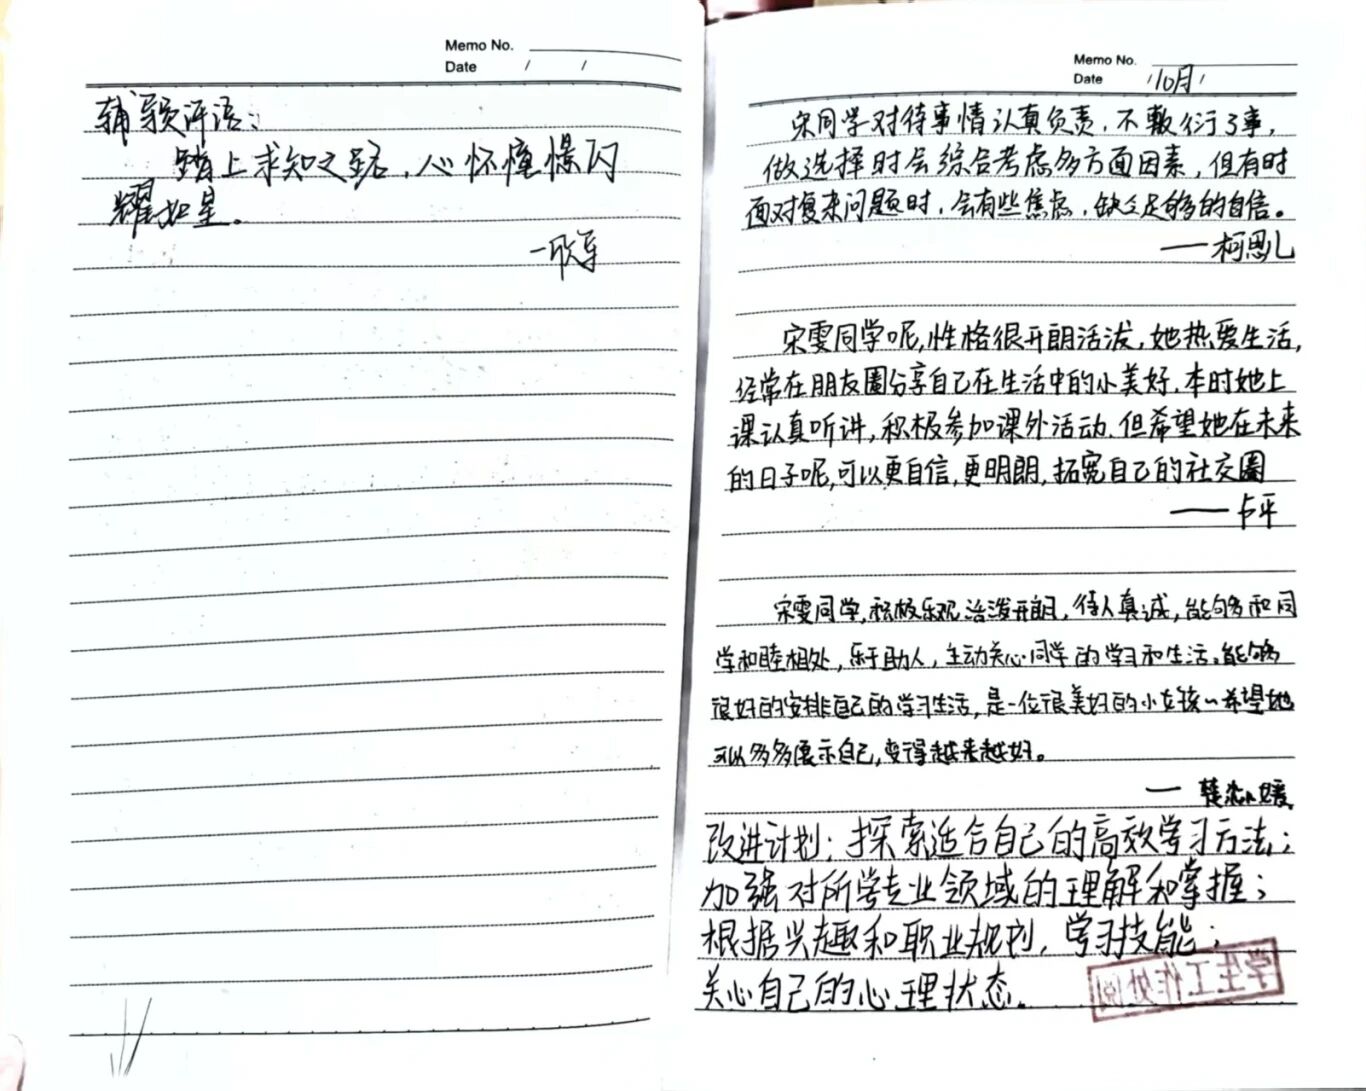 Memo No.
Date / /
辅导员评语：
踏上求知之路，心怀憧憬闪
耀如星。
Memo No.
Date / 10月 /
宋同学对待事情认真负责，不敷衍了事，
做选择时会综合考虑多方面因素，但有时
面对复杂问题时，会有些焦虑，缺乏足够的自信。
——柯恩儿
宋雯同学呢，性格很开朗活泼，她热爱生活，
经常在朋友圈分享自己在生活中的小美好，本时她上
课认真听讲，积极参加课外活动，但希望她在未来
的日子呢，可以更自信，更明朗，拓宽自己的社交圈
——卢平
宋雯同学，积极乐观活泼开朗，待人真诚，能够和同
学和睦相处，乐于助人，主动关心同学的学习和生活。能够
很好的安排自己的学习生活，是一位很美好的小女孩~希望她
可以多多展示自己，变得越来越好。
改进计划：探索适合自己的高效学习方法；
加强对所学专业领域的理解和掌握；
根据兴趣和职业规划，学习技能；
关心自己的心理状态。
学生工作处阅